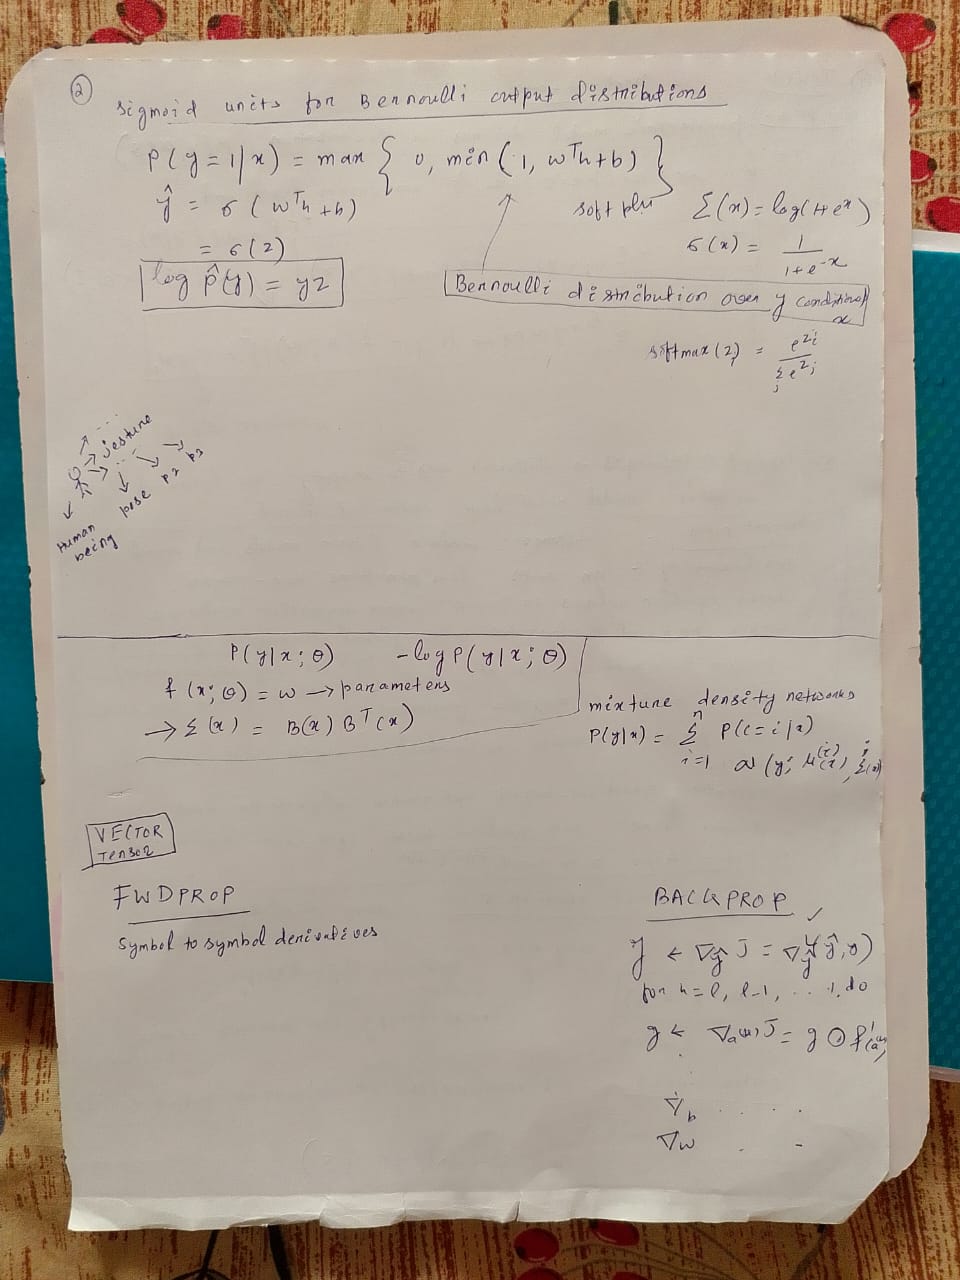 2
sigmoid units for Bernoulli output distributions
P(y=1|x) = max { 0, min(1, wᵀh+b) }
ŷ = σ(wᵀh+b)
= σ(z)
log p̂(y) = yz
softplu ζ(x) = log(1+eˣ)
σ(x) = 1/(1+e⁻ˣ)
Bernoulli distribution over y conditional
x
softmax(z)ᵢ = e^zᵢ / Σⱼ e^zⱼ
jesture
pose p2 p3
Human
being
P(y|x;θ) -log P(y|x;θ)
f(x;θ) = w → parameters
→ Σ(x) = B(x)Bᵀ(x)
mixture density networks
P(y|x) = Σ_{i=1}^{n} P(c=i|x)
N(y; μ⁽ⁱ⁾(x), Σⁱ(x))
VECTOR
Tensor
FWDPROP
Symbol to symbol derivatives
BACKPROP ✓
g ← ∇_ŷ J = ∇_ŷ L(ŷ,y)
for k=l, l-1, ... 1, do
g ← ∇a⁽ᵏ⁾J = g ⊙ f'(a⁽ᵏ⁾)
∇b . . . .
∇w . -